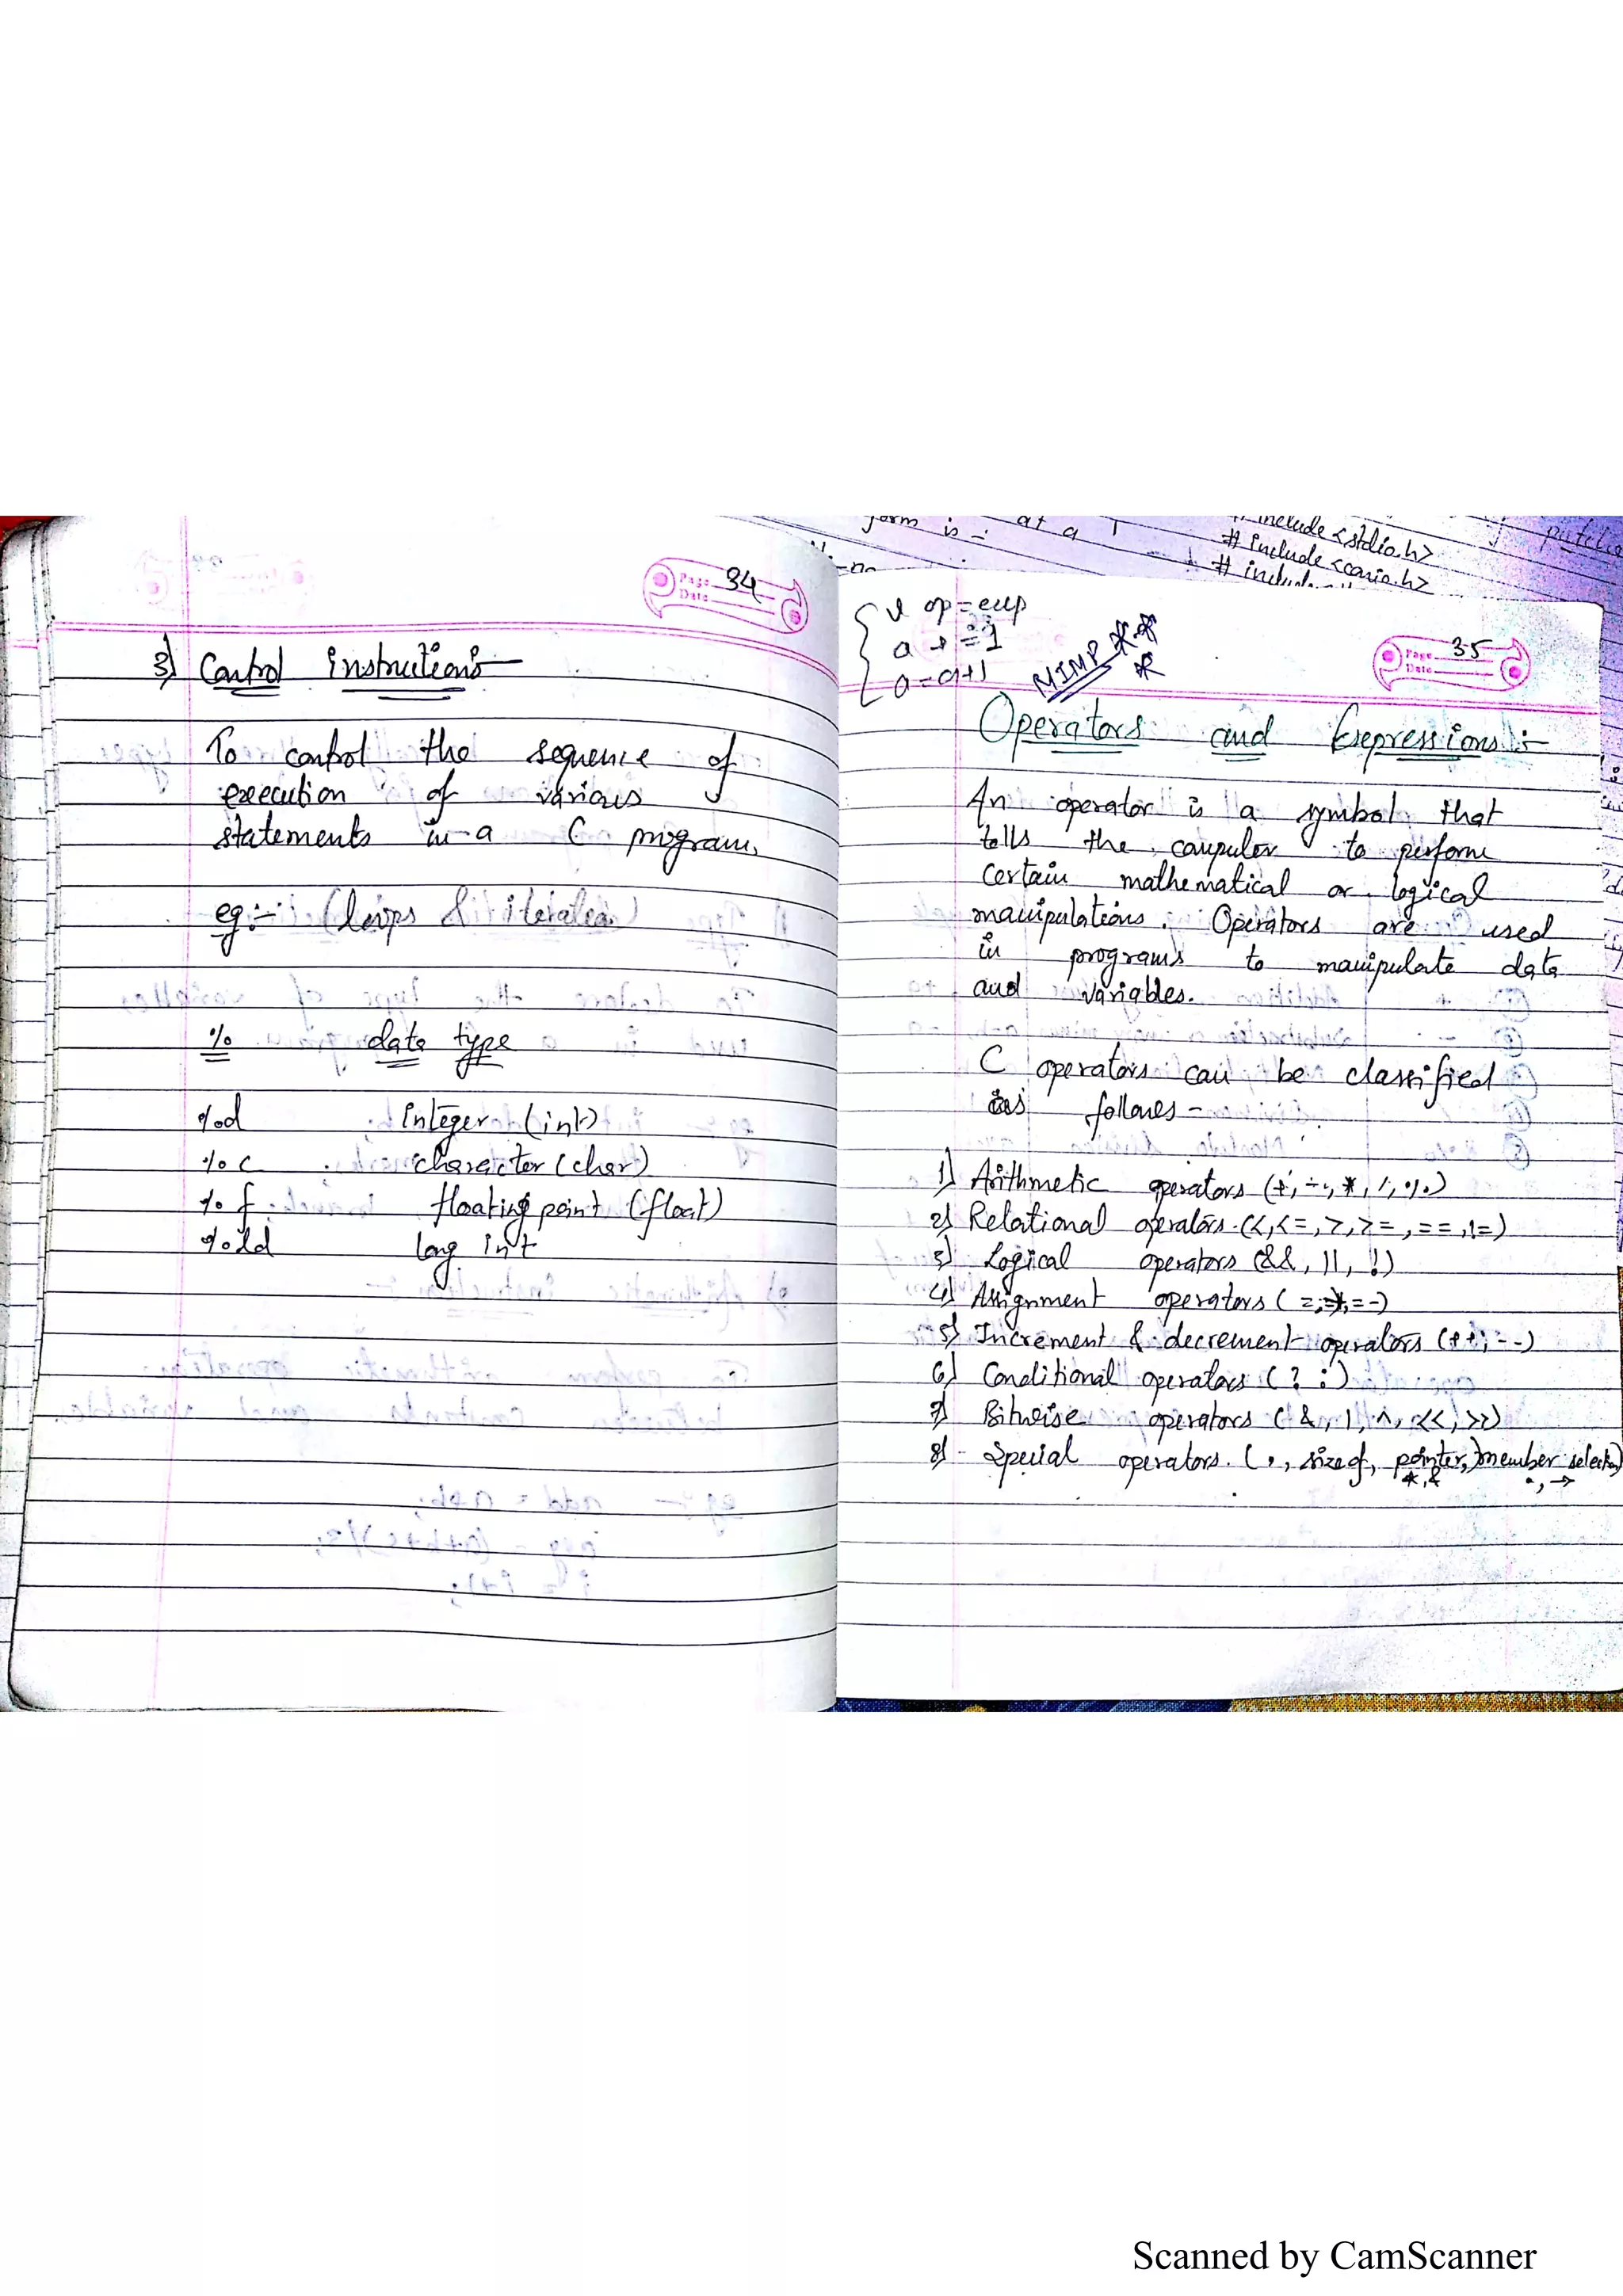 Page 34
Date
3) Control instructions
To control the sequence of
execution of various
statements in a C program.
eg:- (loops & iteration)
% data type
%d Integer (int)
%c character (char)
%f floating point (float)
%ld long int
form is :- at a
# include <stdio.h>
# include <conio.h>
# includ
v op = exp
a + = 1
a = a+1
MIMP ***
Page 35
Date
Operators and Expressions :-
An operator is a symbol that
tells the computer to perform
certain mathematical or logical
manipulations. Operators are used
in programs to manipulate data
and variables.
C operators can be classified
as follows -
1) Arithmetic operators (+, -, *, /, %)
2) Relational operators (<, <=, >, >=, ==, !=)
3) Logical operators (&&, ||, !)
4) Assignment operators ( =, =+, =-)
5) Increment & decrement operators (++, --)
6) Conditional operators ( ? : )
7) Bitwise operators ( &, |, ^, <<, >>)
8) Special operators. ( , , sizeof, pointer, member selectn)
*, & ., →
Scanned by CamScanner